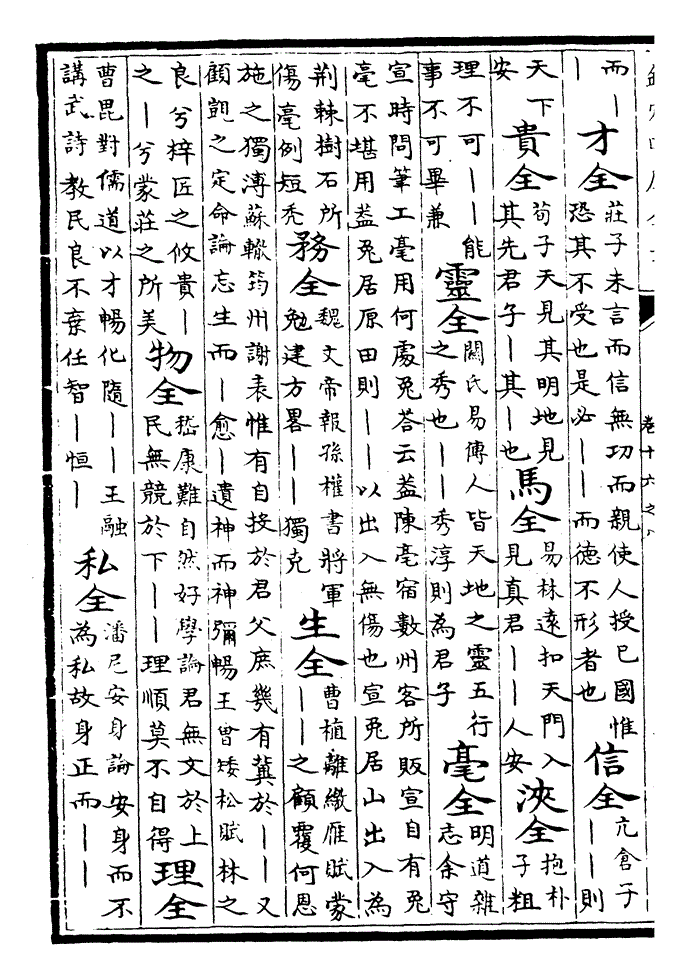 而｜
｜
才全
莊子未言而信無功而親使人授已國惟
恐其不受也是必｜｜而德不形者也
信全
亢倉子
｜｜則
天下
安
貴全
荀子天見其明地見
其先君子｜其｜也
馬全
易林遠扣天門入
見真君｜｜人安
浹全
抱朴
子粗
理不可｜｜能
事不可畢兼
靈全
關氏易傳人皆天地之靈五行
之秀也｜｜秀淳則為君子
毫全
明道雜
志余守
宣時問筆工毫用何處兔荅云葢陳亳宿數州客所販宣自有兔
毫不堪用葢兔居原田則｜｜以出入無傷也宣兔居山出入為
荆棘樹石所
傷毫例短秃
務全
魏文帝報孫權書將軍
勉建方畧｜｜獨克
生全
曹植離繳雁賦蒙
｜｜之顧覆何恩
施之獨溥蘇轍筠州謝表惟有自投於君父庶幾有冀於｜｜又
顧覬之定命論忘生而｜愈｜遺神而神彌暢王曾矮松賦林之
良兮梓匠之攸貴｜
之｜兮蒙莊之所美
物全
嵇康難自然好學論君無文於上
民無競於下｜｜理順莫不自得
理全
曹毘對儒道以才暢化隨｜｜王融
講武詩教民良不棄任智｜｜恒｜
私全
潘尼安身論安身而不
為私故身正而｜｜｜